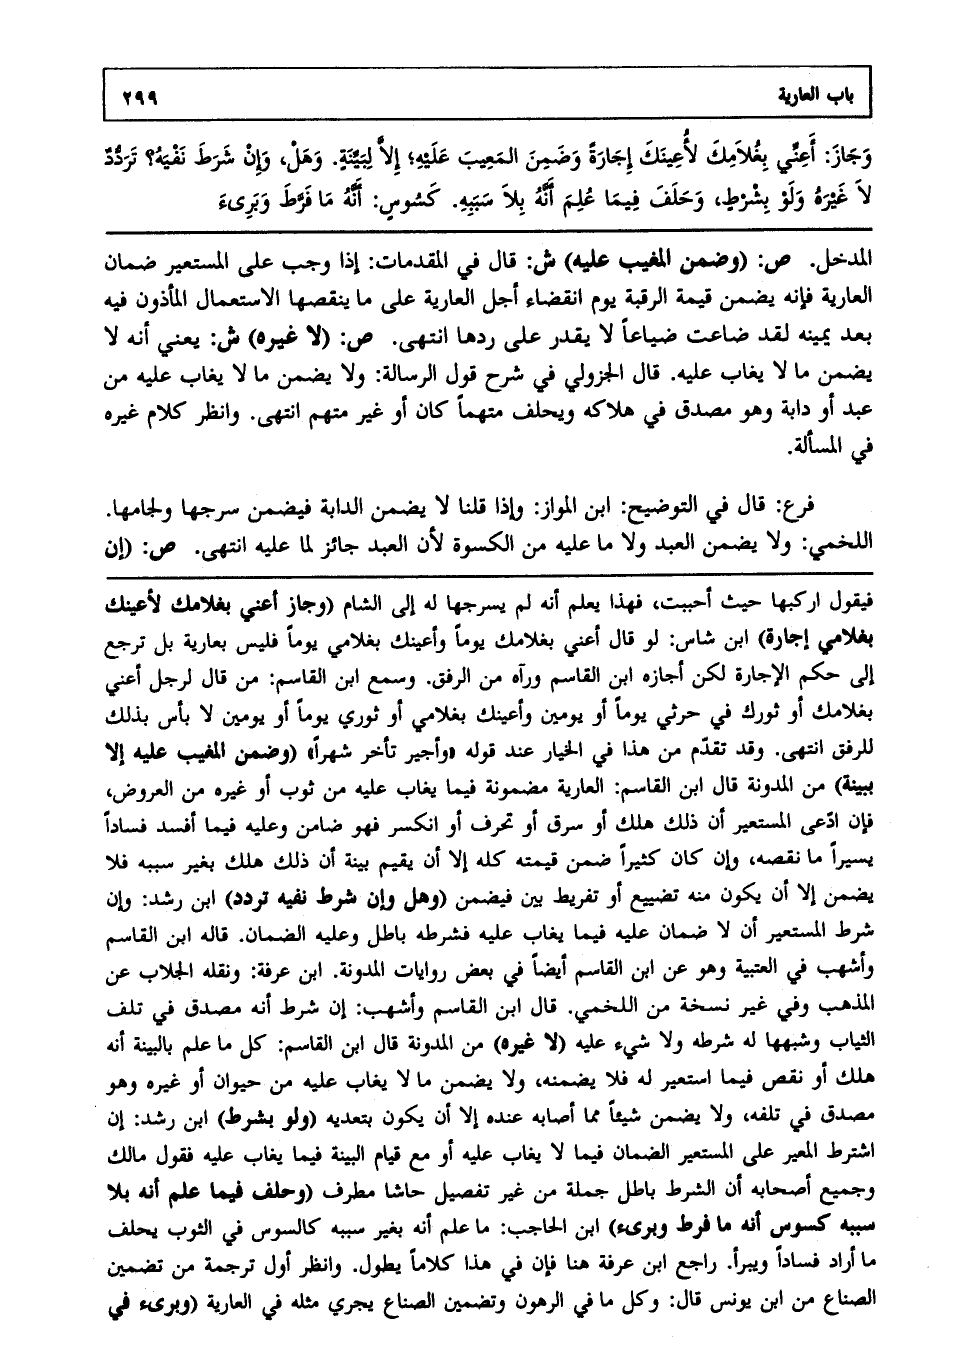 باب العارية ٢٩٩
وَجَازَ: أَعِنِّي بِغُلاَمِكَ لأُعِينَكَ إِجَارَةً وَضَمِنَ المَعِيبَ عَلَيْهِ؛ إِلاَّ لِبَيِّنَةٍ. وَهَلْ، وَإِنْ شَرَطَ نَفْيَهُ؟ تَرَدُّدٌ
لاَ غَيْرَهُ وَلَوْ بِشْرطٍ، وَحَلَفَ فِيمَا عُلِمَ أَنَّهُ بِلاَ سَبَبِهِ. كَسُوسٍ: أَنَّهُ مَا فَرَّطَ وَبَرِىءَ
المدخل. ص: (وضمن المغيب عليه) ش: قال في المقدمات: إذا وجب على المستعير ضمان
العارية فإنه يضمن قيمة الرقبة يوم انقضاء أجل العارية على ما ينقصها الاستعمال المأذون فيه
بعد يمينه لقد ضاعت ضياعاً لا يقدر على ردها انتهى. ص: (لا غيره) ش: يعني أنه لا
يضمن ما لا يغاب عليه. قال الجزولي في شرح قول الرسالة: ولا يضمن ما لا يغاب عليه من
عبد أو دابة وهو مصدق في هلاكه ويحلف متهماً كان أو غير متهم انتهى. وانظر كلام غيره
في المسألة.
فرع: قال في التوضيح: ابن المواز: وإذا قلنا لا يضمن الدابة فيضمن سرجها ولجامها.
اللخمي: ولا يضمن العبد ولا ما عليه من الكسوة لأن العبد جائز لما عليه انتهى. ص: (إن
فيقول اركبها حيث أحببت، فهذا يعلم أنه لم يسرجها له إلى الشام (وجاز أعني بغلامك لأعينك
بغلامي إجارة) ابن شاس: لو قال أعني بغلامك يوماً وأعينك بغلامي يوماً فليس بعارية بل ترجع
إلى حكم الإجارة لكن أجازه ابن القاسم ورآه من الرفق. وسمع ابن القاسم: من قال لرجل أعني
بغلامك أو ثورك في حرثي يوماً أو يومين وأعينك بغلامي أو ثوري يوماً أو يومين لا بأس بذلك
للرفق انتهى. وقد تقدّم من هذا في الخيار عند قوله «وأجير تأخر شهراً» (وضمن المغيب عليه إلا
ببينة) من المدونة قال ابن القاسم: العارية مضمونة فيما يغاب عليه من ثوب أو غيره من العروض،
فإن ادّعى المستعير أن ذلك هلك أو سرق أو تحرف أو انكسر فهو ضامن وعليه فيما أفسد فساداً
يسيراً ما نقصه، وإن كان كثيراً ضمن قيمته كله إلا أن يقيم بينة أن ذلك هلك بغير سببه فلا
يضمن إلا أن يكون منه تضييع أو تفريط بين فيضمن (وهل وإن شرط نفيه تردد) ابن رشد: وإن
شرط المستعير أن لا ضمان عليه فيما يغاب عليه فشرطه باطل وعليه الضمان. قاله ابن القاسم
وأشهب في العتبية وهو عن ابن القاسم أيضاً في بعض روايات المدونة. ابن عرفة: ونقله الجلاب عن
المذهب وفي غير نسخة من اللخمي. قال ابن القاسم وأشهب: إن شرط أنه مصدق في تلف
الثياب وشبهها له شرطه ولا شيء عليه (لا غيره) من المدونة قال ابن القاسم: كل ما علم بالبينة أنه
هلك أو نقص فيما استعير له فلا يضمنه، ولا يضمن ما لا يغاب عليه من حيوان أو غيره وهو
مصدق في تلفه، ولا يضمن شيئاً مما أصابه عنده إلا أن يكون بتعديه (ولو بشرط) ابن رشد: إن
اشترط المعير على المستعير الضمان فيما لا يغاب عليه أو مع قيام البينة فيما يغاب عليه فقول مالك
وجميع أصحابه أن الشرط باطل جملة من غير تفصيل حاشا مطرف (وحلف فيما علم أنه بلا
سببه كسوس أنه ما فرط وبرىء) ابن الحاجب: ما علم أنه بغير سببه كالسوس في الثوب يحلف
ما أراد فساداً ويبرأ. راجع ابن عرفة هنا فإن في هذا كلاماً يطول. وانظر أول ترجمة من تضمين
الصناع من ابن يونس قال: وكل ما في الرهون وتضمين الصناع يجري مثله في العارية (وبرىء في